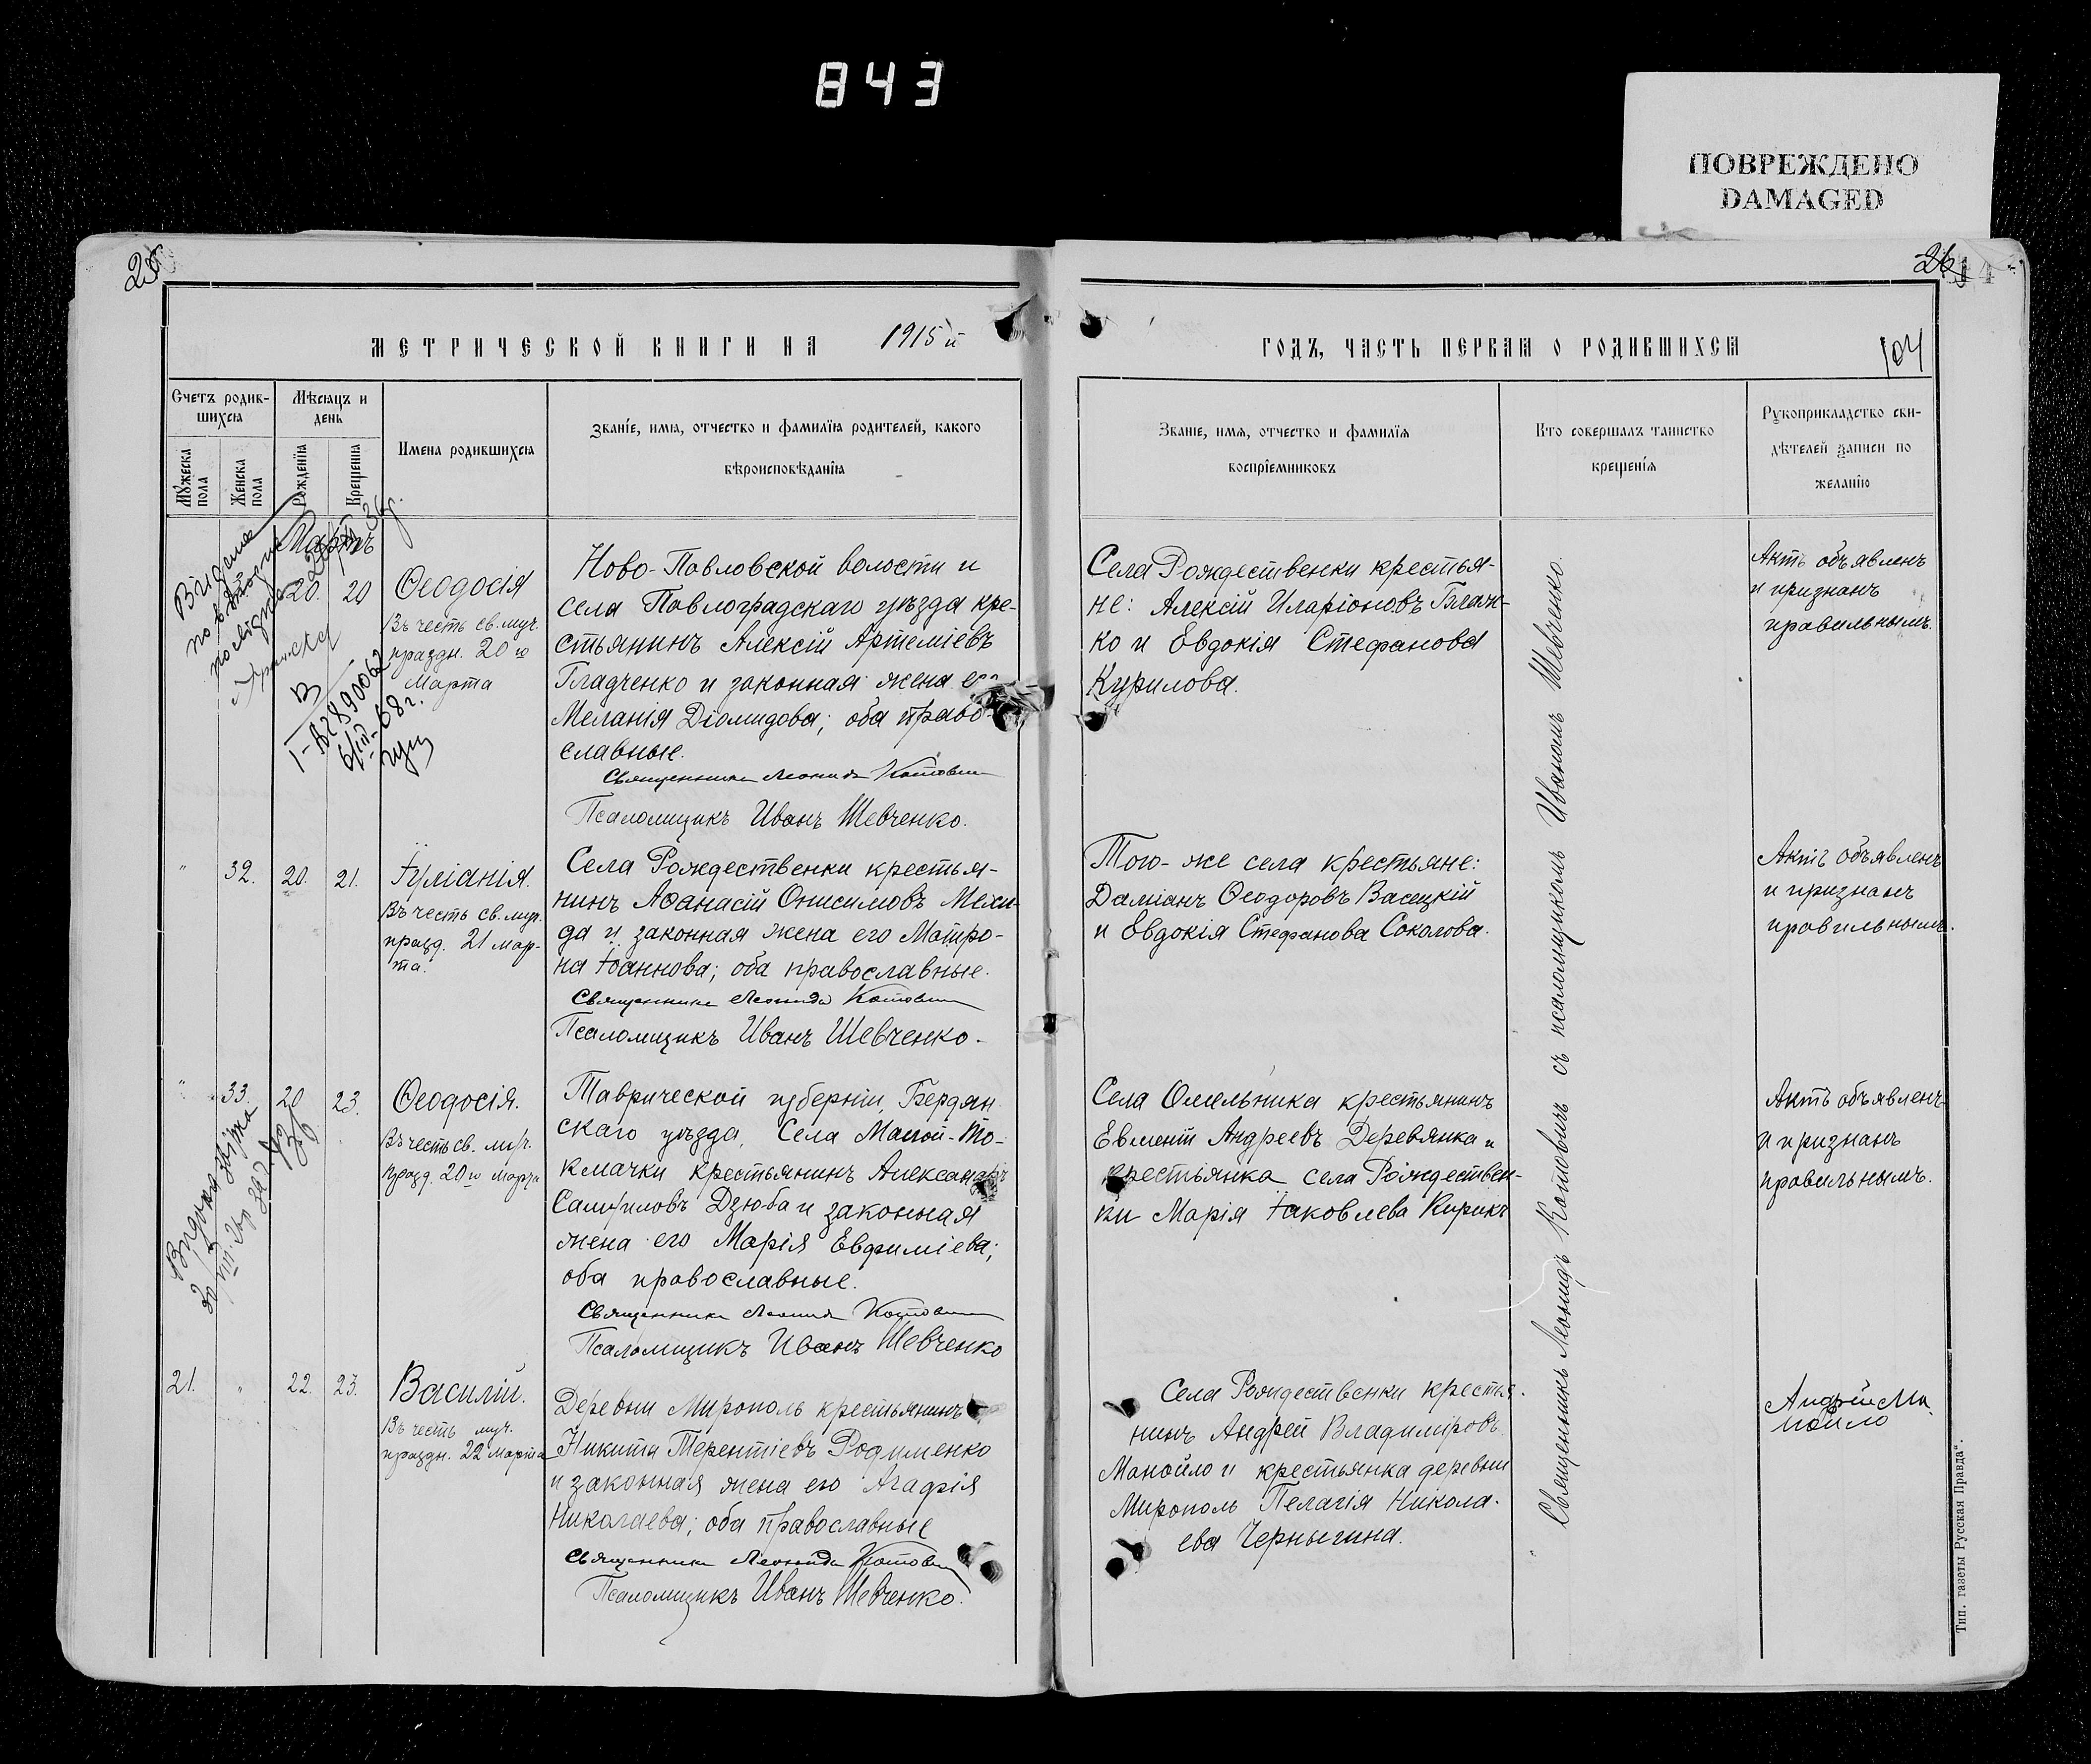 843
ПОВРЕЖДЕНО
DAMAGED
25
26
104
МЕТРИЧЕСКОЙ КНИГИ НА 1915 й
ГОДЪ, ЧАСТЬ ПЕРВАЯ О РОДИВШИХСЯ
Счетъ родив-
шихся
Мѣсяцъ и
день
Имена родившихся
Званіе, имя, отчество и фамилія родителей, какого
вѣроисповѣданія
Мужеска
пола
Женска
пола
Рожденія
Крещенія
Званіе, имя, отчество и фамилія
воспріемниковъ
Кто совершалъ таинство
крещенія
Рукоприкладство сви-
дѣтелей записи по
желанію
Мартъ
20. 20
Ѳеодосія
Въ честь св. муч.
праздн. 20 го
Марта
Ново-Павловской волости и
села Павлоградскаго уѣзда кре-
стьянинъ Алексій Артеміевъ
Гладченко и законная жена его
Меланія Діомидова; оба право-
славные.
Священникъ Леонидъ Котович
Псаломщикъ Иванъ Шевченко.
Села Рождественки крестья-
не: Алексій Иларіоновъ Блаж-
ко и Евдокія Стефанова
Курилова.
Актъ объявленъ
и признанъ
правильнымъ.
I-А2 890062
6/III-68 г.
" 32. 20. 21.
Іуліанія.
Въ честь св. муч.
празд. 21 мар-
та.
Села Рождественки крестья-
нинъ Аѳанасій Онисимовъ Мехи-
да и законная жена его Матро-
на Іоаннова; оба православные.
Священникъ Леонидъ Котович
Псаломщикъ Иванъ Шевченко.
Того-же села крестьяне:
Даміанъ Ѳеодоровъ Васецкій
и Евдокія Стефанова Соколова.
Актъ объявленъ
и признанъ
правильнымъ.
" 33. 20 23.
Ѳеодосія.
Въ честь св. муч.
празд. 20 го марта
Таврической губерніи, Бердян
скаго уѣзда, Села Малой-То-
кмачки крестьянинъ Александръ
Самуиловъ Дзюба и законная
жена его Марія Евфиміева;
оба православные.
Священникъ Леонидъ Котович
Псаломщикъ Иванъ Шевченко
Села Омельника крестьянинъ
Евменій Андреевъ Деревянка и
крестьянка села Рождествен-
ки Марія Іаковлева Кирикъ
Актъ объявленъ
и признанъ
правильнымъ.
21. " 22. 23.
Василій.
Въ честь муч.
праздн. 22 марта
Деревни Мирополь крестьянинъ
Никита Терентіевъ Родименко
и законная жена его Агафія
Николаева; оба православные
Священникъ Леонидъ Котович
Псаломщикъ Иванъ Шевченко.
Села Рождественки крестья-
нинъ Андрей Владиміровъ
Манойло и крестьянка деревни
Мирополь Пелагія Никола-
ева Чернышина.
Андрей Ма
нойло
Священникъ Леонидъ Котовичъ съ псаломщикомъ Иваномъ Шевченко.
Тип. газеты Русская Правда".